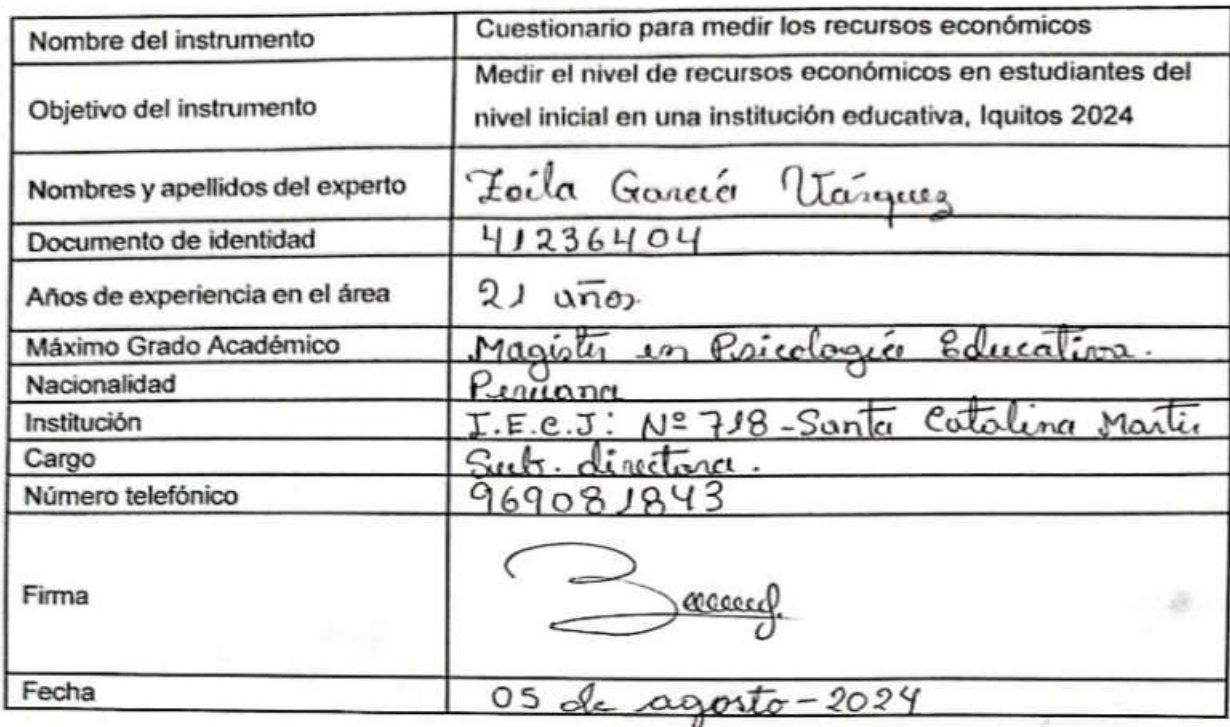 Nombre del instrumento Cuestionario para medir los recursos económicos
Objetivo del instrumento Medir el nivel de recursos económicos en estudiantes del
nivel inicial en una institución educativa, Iquitos 2024
Nombres y apellidos del experto Zoila García Vásquez
Documento de identidad 41236404
Años de experiencia en el área 21 años
Máximo Grado Académico Magister en Psicología Educativa.
Nacionalidad Peruana
Institución I.E.C.J: Nº 718 - Santa Catalina Martir
Cargo Sub. directora.
Número telefónico 969081843
Firma
Fecha 05 de agosto - 2024